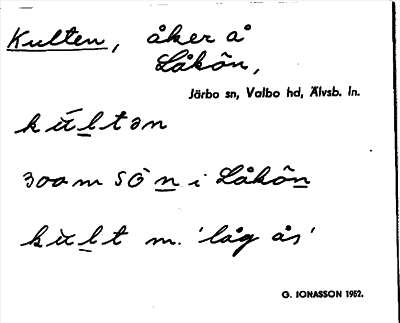 Kulten, åker å
Låkôn,
Järbo sn, Valbo hd, Älvsb. ln.
kúltən
300 m SO n i Låkôn
kùlt m. 'låg ås'
G. JONASSON 1962.